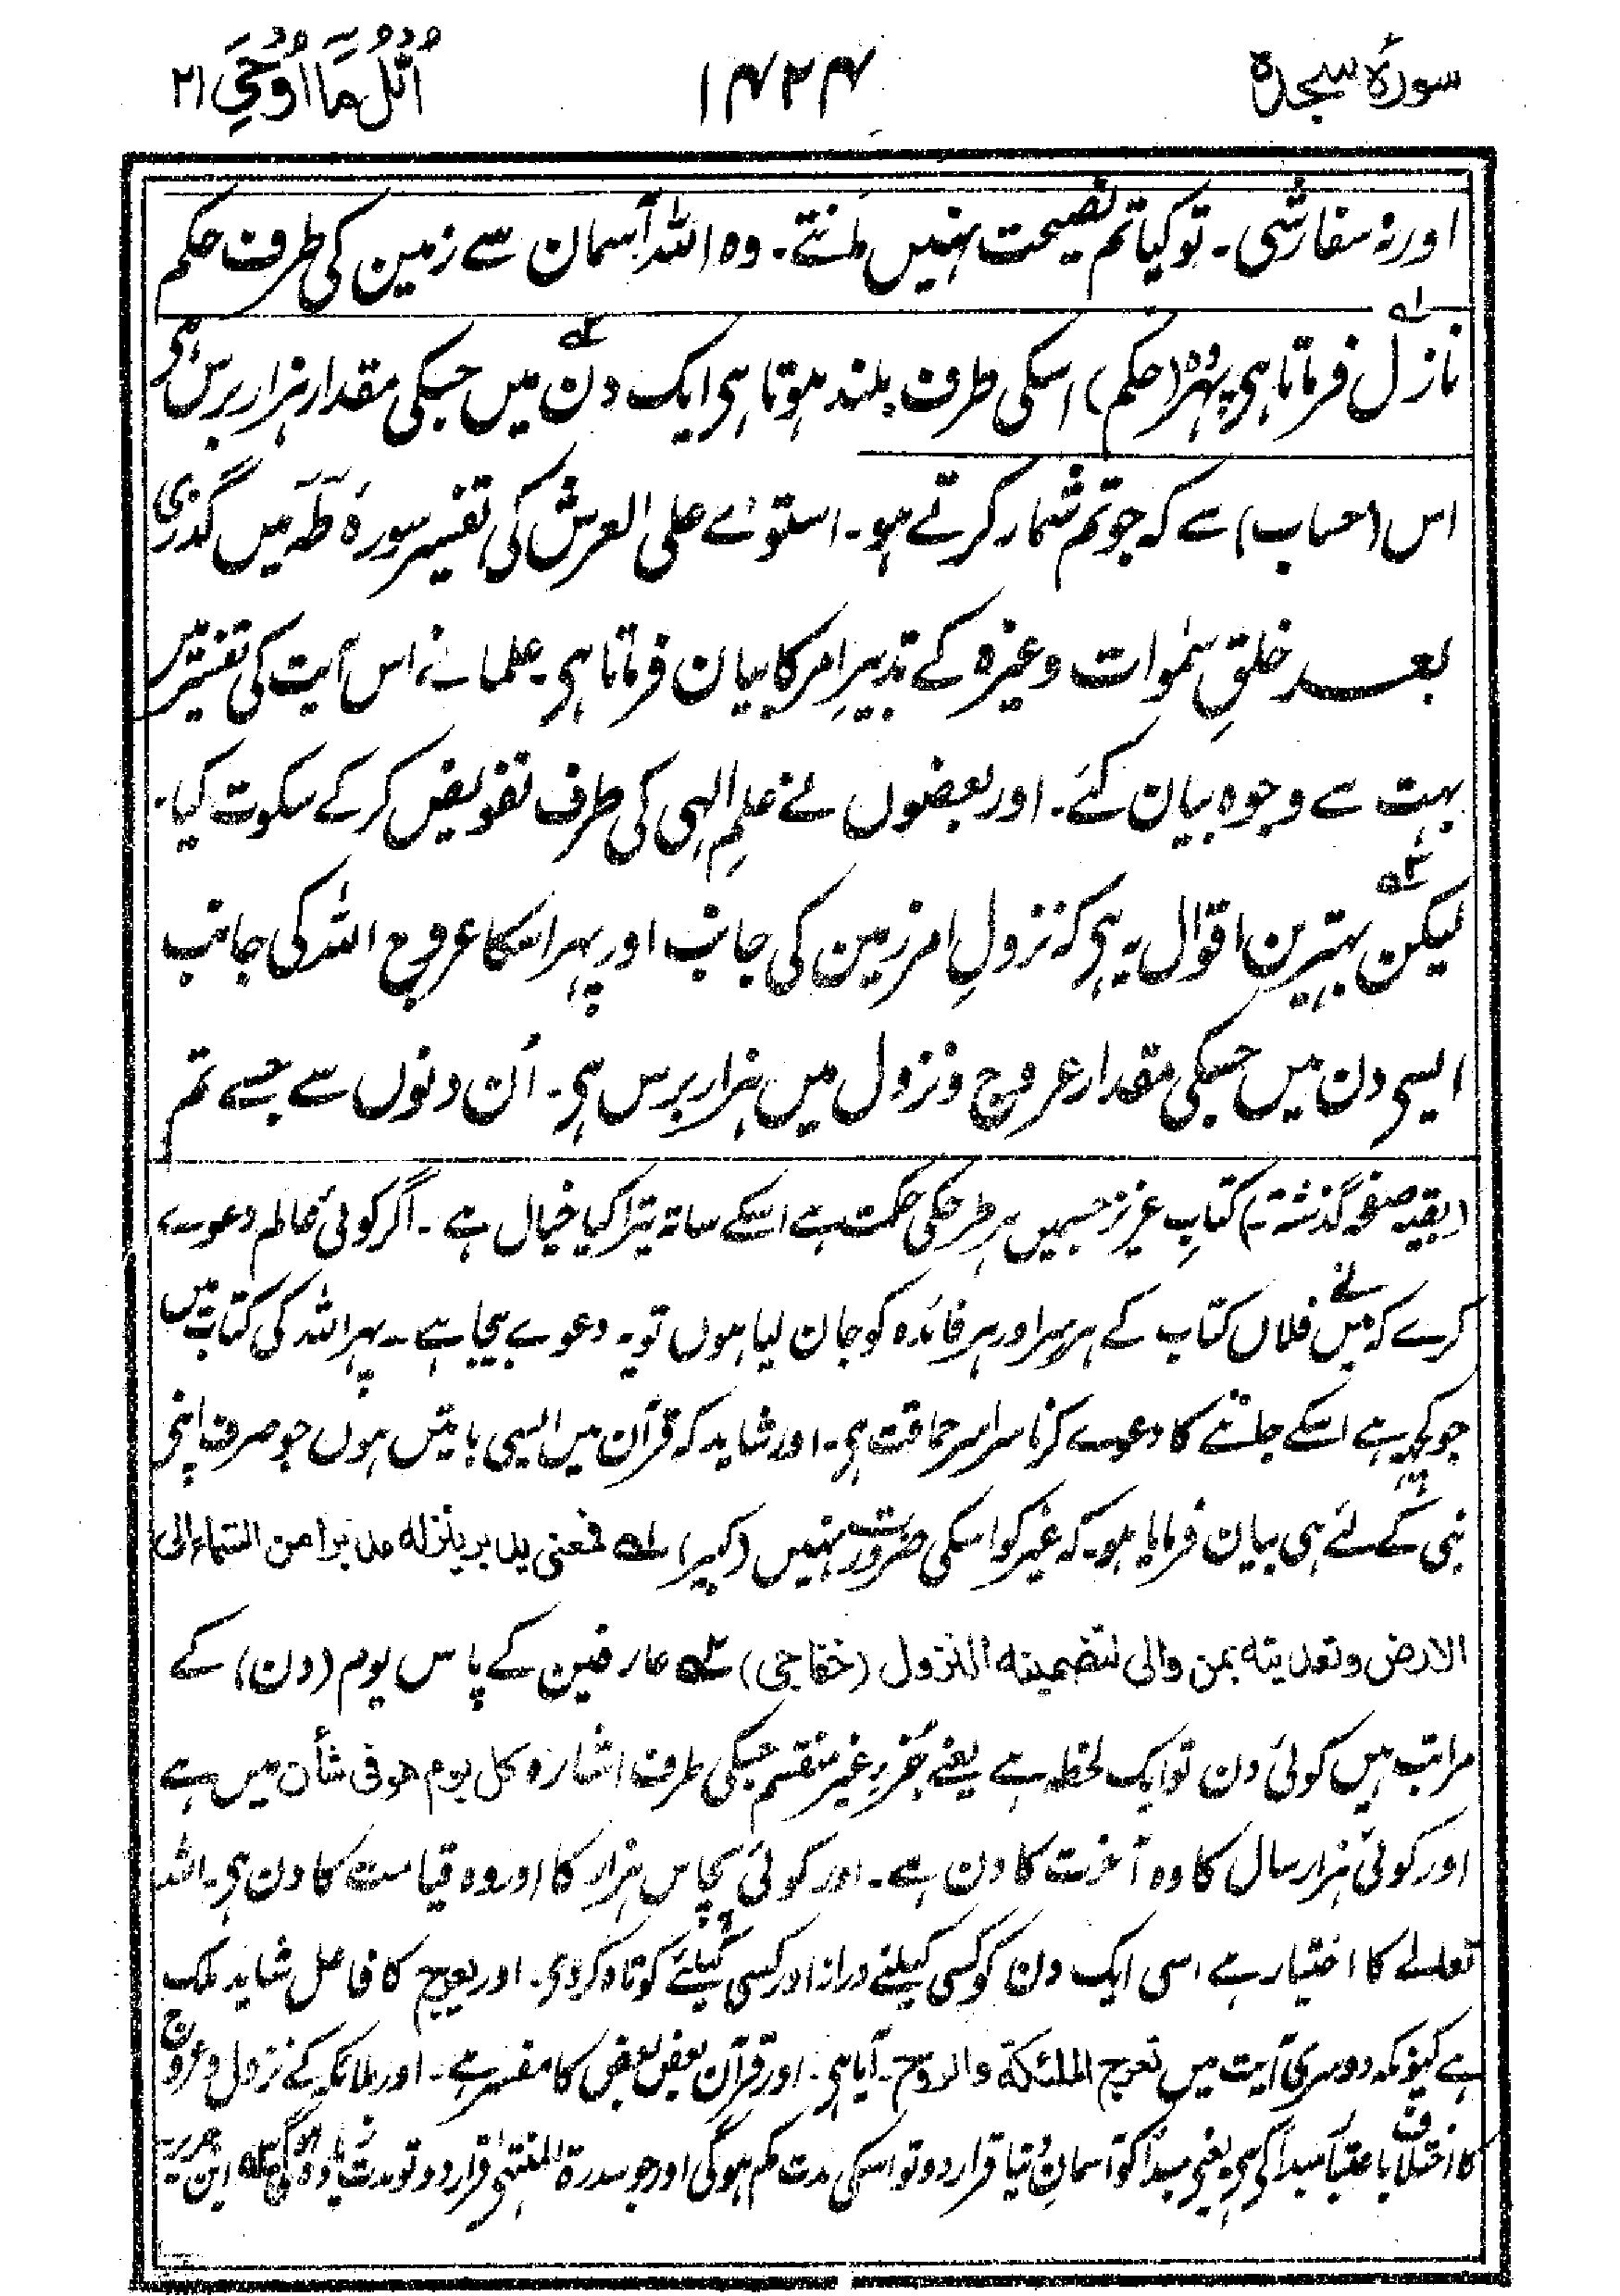 سورۂ سجدۃ ۱۴۲۴ اُتْلُ مَآ اُوْحِیَ ۲۱
اور نہ سفارشی ۔ تو کیا تم نصیحت نہیں مانتے ۔ وہ اللہ آسمان سے زمین کی طرف حکم
نازل ۱؎ فرماتا ہی پہر وہ (حکم) اسکی طرف بلند ہوتا ہی ایک دن ۲؎ میں جسکی مقدار ہزار برس ہی
اس (حساب) سے کہ جو تم شمار کرتے ہو ۔ استوے علی العرش کی تفسیر سورۂ طٰہٰ میں گذری
بعد خلقِ سمٰوات وغیرہ کے تدبیرِ امر کا بیان فرماتا ہی ۔ علما نے اس آیت کی تفسیر میں
بہت سے وجوہ بیان کئے ۔ اور بعضوں نے علمِ الٰہی کی طرف تفویض کرکے سکوت کیا ۔
لیکن ۳؎ بہترین اقوال یہ ہی کہ نزولِ امر زمین کی جانب اور پہر اسکا عروج اللہ کی جانب
ایسی دن میں جسکی مقدار عروج و نزول میں ہزار برس ہی ۔ اُن دنوں سے جسے تم
(بقیہ صفحہ گذشتہ) کتابِ عزیز جسمیں ہر طرحکی حکمت ہے اسکے ساتہ تیرا کیا خیال ہے ۔ اگر کوئی عالم دعوے
کرے کہ میں نے فلاں کتاب کے ہر سر اور ہر فائدہ کو جان لیا ہوں تو یہ دعوے بیجا ہے ۔ پہر اللہ کی کتاب میں
جو کچہ ہے اسکے جاننے کا دعوے کرنا سراسر حماقت ہی ۔ اور شاید کہ قرآن میں ایسی باتیں ہوں جو صرف اپنی
نبی کے لئے ہی بیان فرمایا ہو ۔ کہ غیر کو اسکی ضرورت نہیں (کبیر) ۱؎ فمعنی یدبر ینزلہ مدبرا من السماء الی
الارض وتعدیتہ بمن والی لتضمینہ النزول (خفاجی) ۲؎ عارفین کے پاس یوم (دن) کے
مراتب ہیں کوئی دن تو ایک لحظہ ہے یعنے جُزء غیر منقسم جسکی طرف اشارہ کل یوم ھو فی شأن میں ہے
اور کوئی ہزار سال کا وہ آخرت کا دن ہے ۔ اور کوئی پچاس ہزار کا اور وہ قیامت کا دن ہی ۔ اللہ
تعالے کا اختیار ہے اسی ایک دن کو کسی کیلئے دراز اور کسی کیلئے کوتاہ کردی ۔ اور یعرج کا فاعل شاید ملک
ہے کیونکہ دوسری آیت میں تعرج الملٰئکۃ والروح ۔ آیا ہی ۔ اور قرآن بعض بعض کا مفسر ہے ۔ اور ملائکہ کے نزول و عروج
کا اختلاف باعتبار مبدا کے ہی یعنی مبدا کو آسمانِ دنیا قرار دو تو اسکی مدت کم ہوگی اور جو سدرۃ المنتہٰی قرار دو تو مدت زیادہ ہوگی ۳؎ ابن جریر